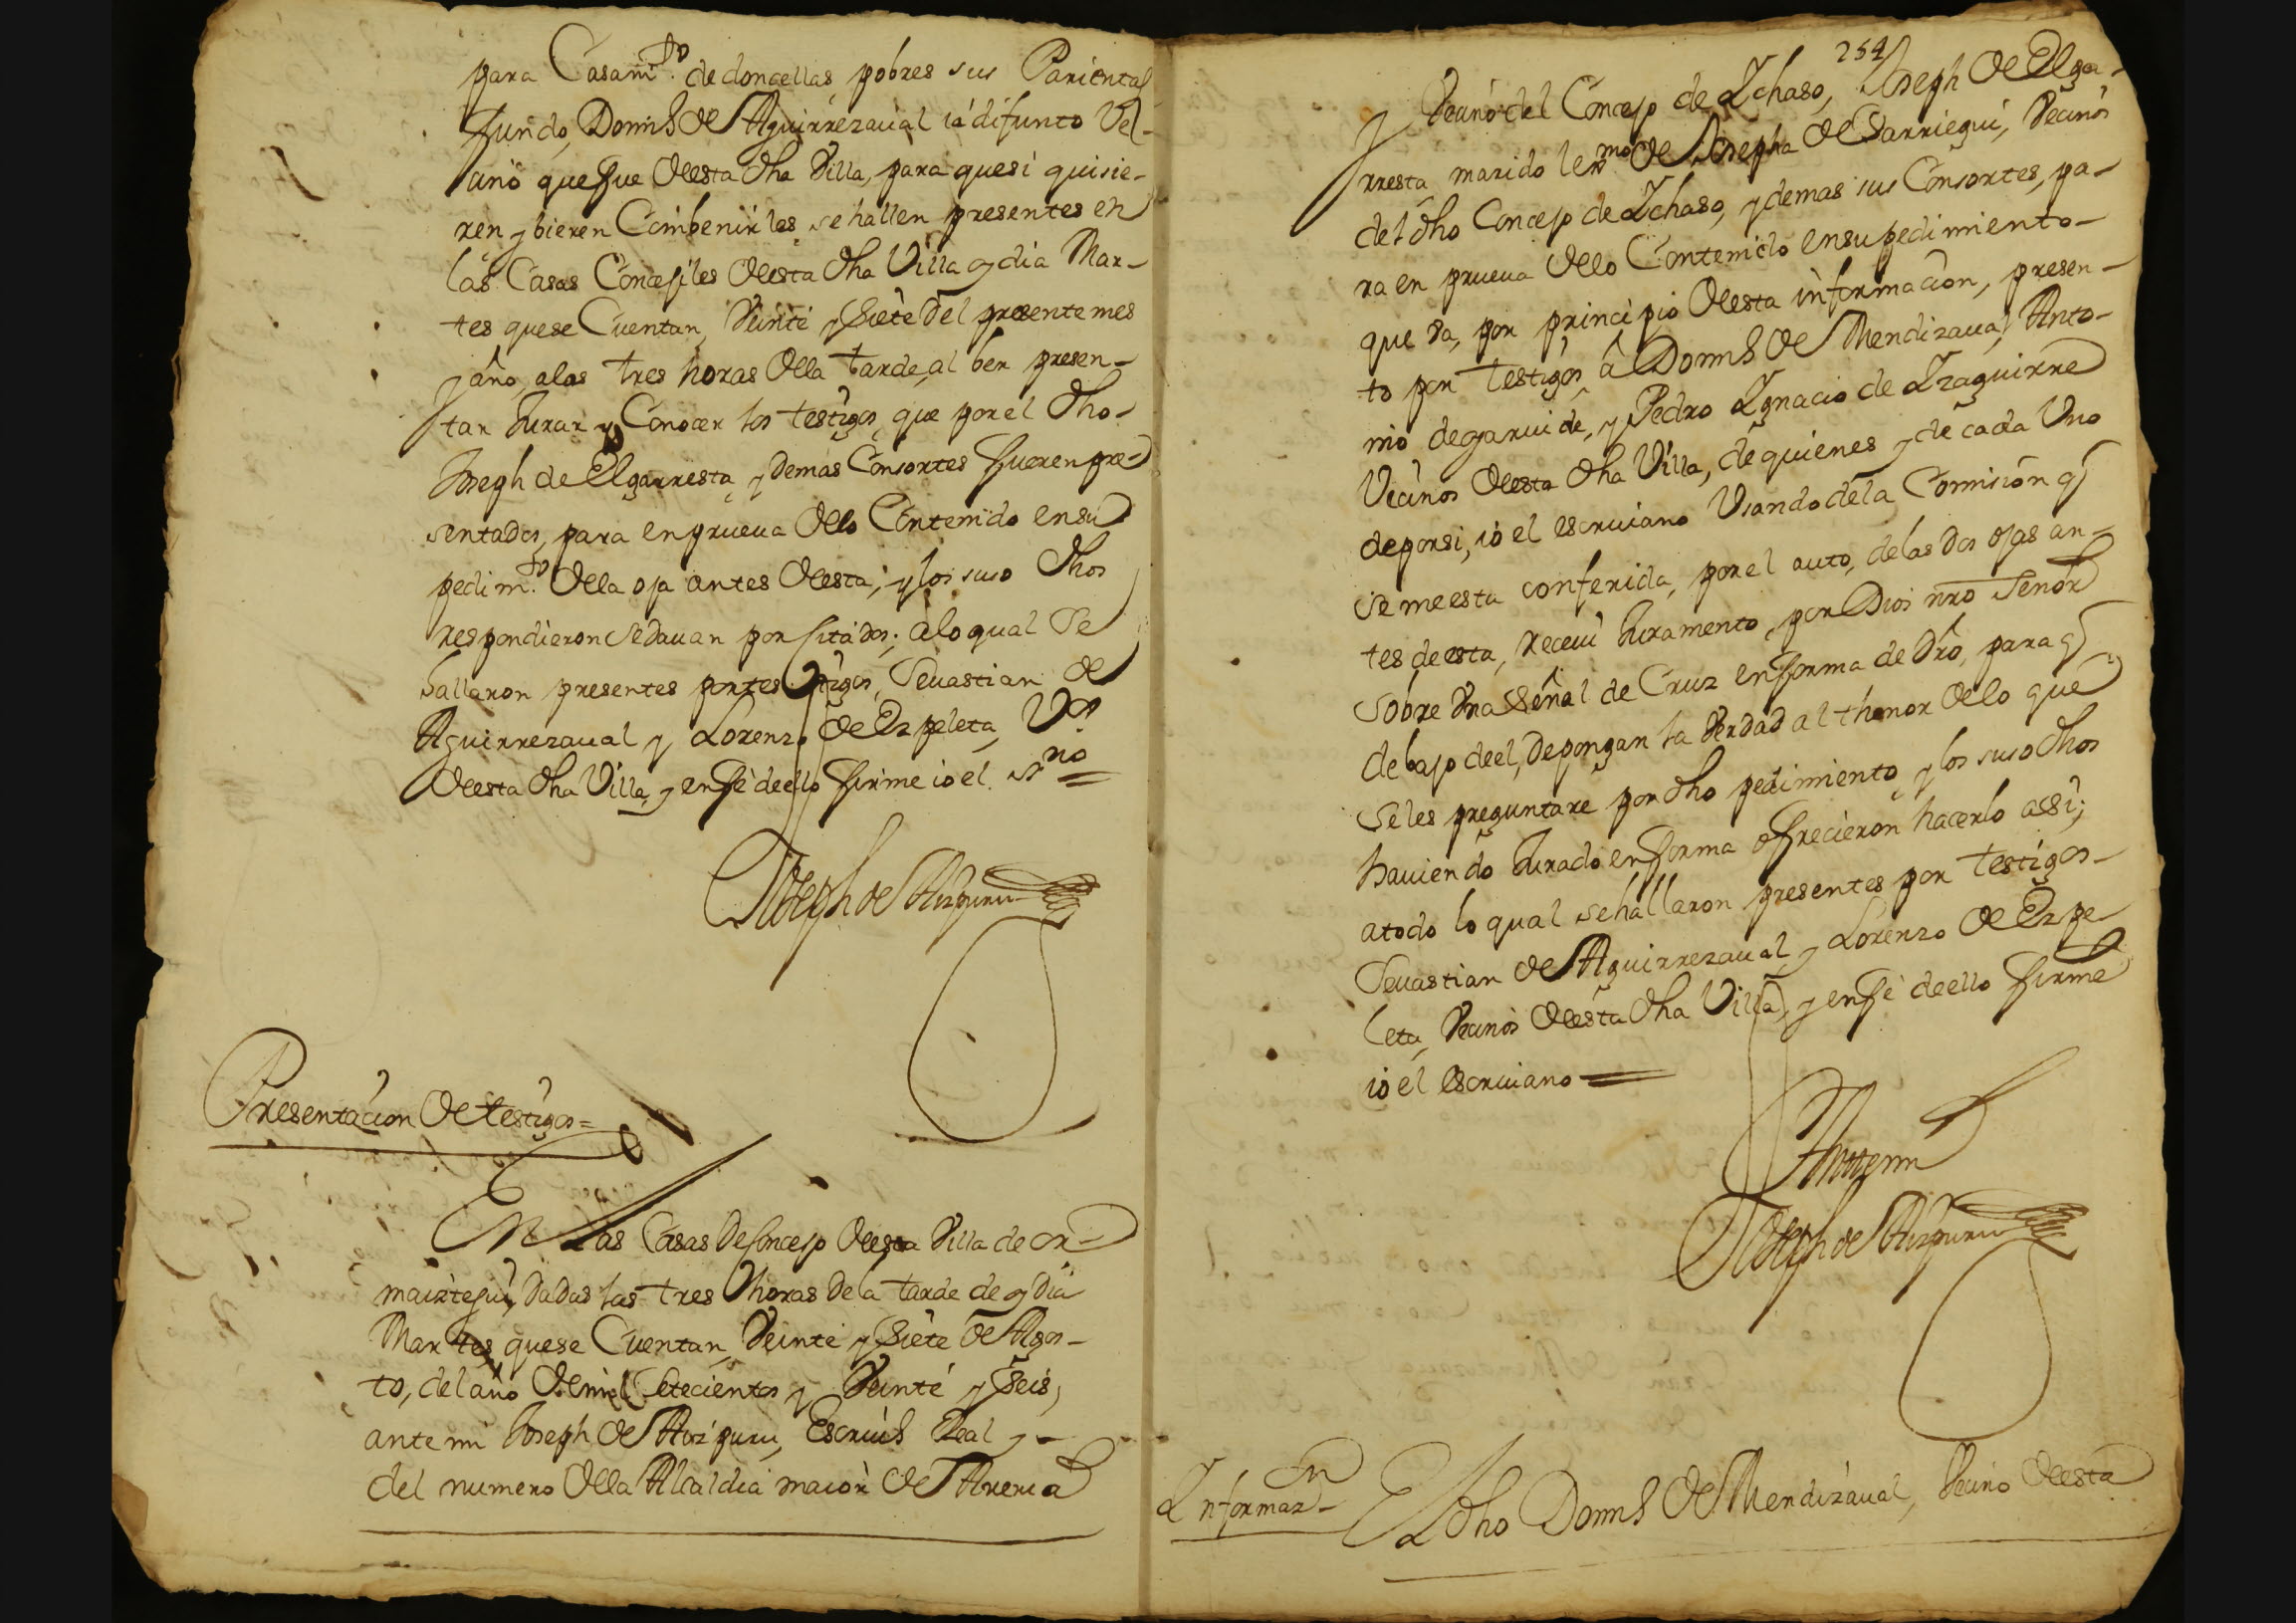 para Casam.to de doncellas, pobres sus Parientas
fundo, Domis de Aguirrezaual ia difunto Ve-
cino que fue desta dha Villa, para que si quisie-
ren y bieren Combenirles, se hallen presentes en
las Casas Concejiles desta dha Villa oy dia Mar-
tes que se Cuentan, Veinte y Siete del presente mes
y año, alas tres horas della tarde, al ber presen-
tar Jurar y Conocer los testigos, que por el dho
Joseph de Elgarresta, y demas Consortes fueren pre-
sentados, para en prueua dello Contenido en su
pedim.to della oja antes desta; y los suso dhos
respondieron se dauan por sitados; alo qual se
hallaron presentes por testigos, Seuastian de
Aguirrezaual y Lorenzo de Ezpeleta, Vs.
desta dha Villa, y en fè de ello firme io el ss.no
Joseph de Aizpuru
Presentacion de testigos=
En Las Casas de Concejo desta Villa de or-
maiztegui, dadas las tres horas dela tarde de oy dia
Martes que se Cuentan, Veinte y Siete de Agos-
to, del año de mil Setecientos y Veinte y Seis,
ante mi Joseph de Aizpuru, Escriuº Real y
del numero della Alcaldia maior de Areria
254
Vecino del Concejo de Ychaso, Joseph de Elga-
rresta marido lex.mo de Josepha de Sarriegui, Vecinos
del dho Concejo de Ychaso, y demas sus Consortes, pa-
ra en prueua dello Contenido en su pedimiento
que va, por principio desta informacion, presen-
to por testigos, â Domis de Mendizaual, Anto-
nio de garuide, y Pedro Ygnacio de Yzaguirre
Vecinos desta dha Villa, de quienes y de cada Uno
de por si, io el escriuano Usando de la Comision q
se me esta conferida, por el auto, de las dos ojas an-
tes de esta, receui Juramento, por Dios nro Señor
sobre Vna Señal de Cruz en forma de dro, para q
debajo de el, depongan la Verdad al thenor dello que
se les preguntare por dho pedimiento, y los suso dhos
hauiendo Jurado en forma ofrecieron hacerlo assi;
a todo lo qual se hallaron presentes por testigos
Seuastian de Aguirrezaual, y Lorenzo de Ezpe-
leta, Vecinos desta dha Villa, y en fè de ello firme
io el escriuano
Ante mi
Joseph de Aizpuru
Ynformaz.on
El dho Domis de Mendizaual, Vecino desta